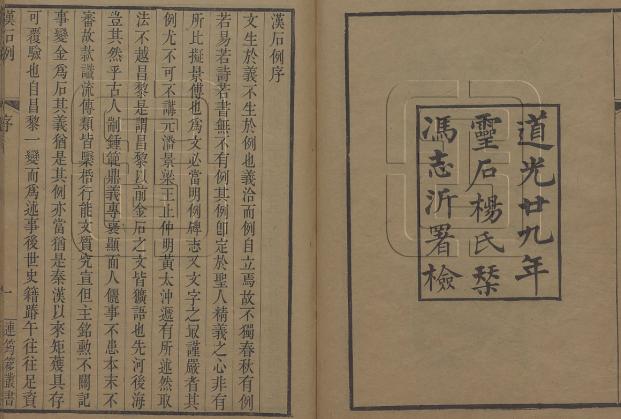 道光廿九年
靈石楊氏栞
馮志沂署檢
漢石例序
文生於義不生於例也義洽而例自立焉故不獨春秋有例
若易若詩若書無不有例其例卽定於聖人精義之心非有
所比擬景傅也爲文必當明例碑志又文字之最謹嚴者其
例尤不可不講元潘景梁王止仲明黃太沖遞有所述然取
法不越昌黎是謂昌黎以前金石之文皆獷語也先河後海
豈其然乎古人制鍾範鼎義專襃顯而人儷事不患本末不
審故款識流傳類皆槩帶行能文質宄宣但主銘勲不關記
事變金爲石其義猶是其例亦當猶是秦漢以來矩矱具存
可覆驗也自昌黎一變而爲述事後世史籍踳午往往足資
漢石例
序
一
連筠簃叢書